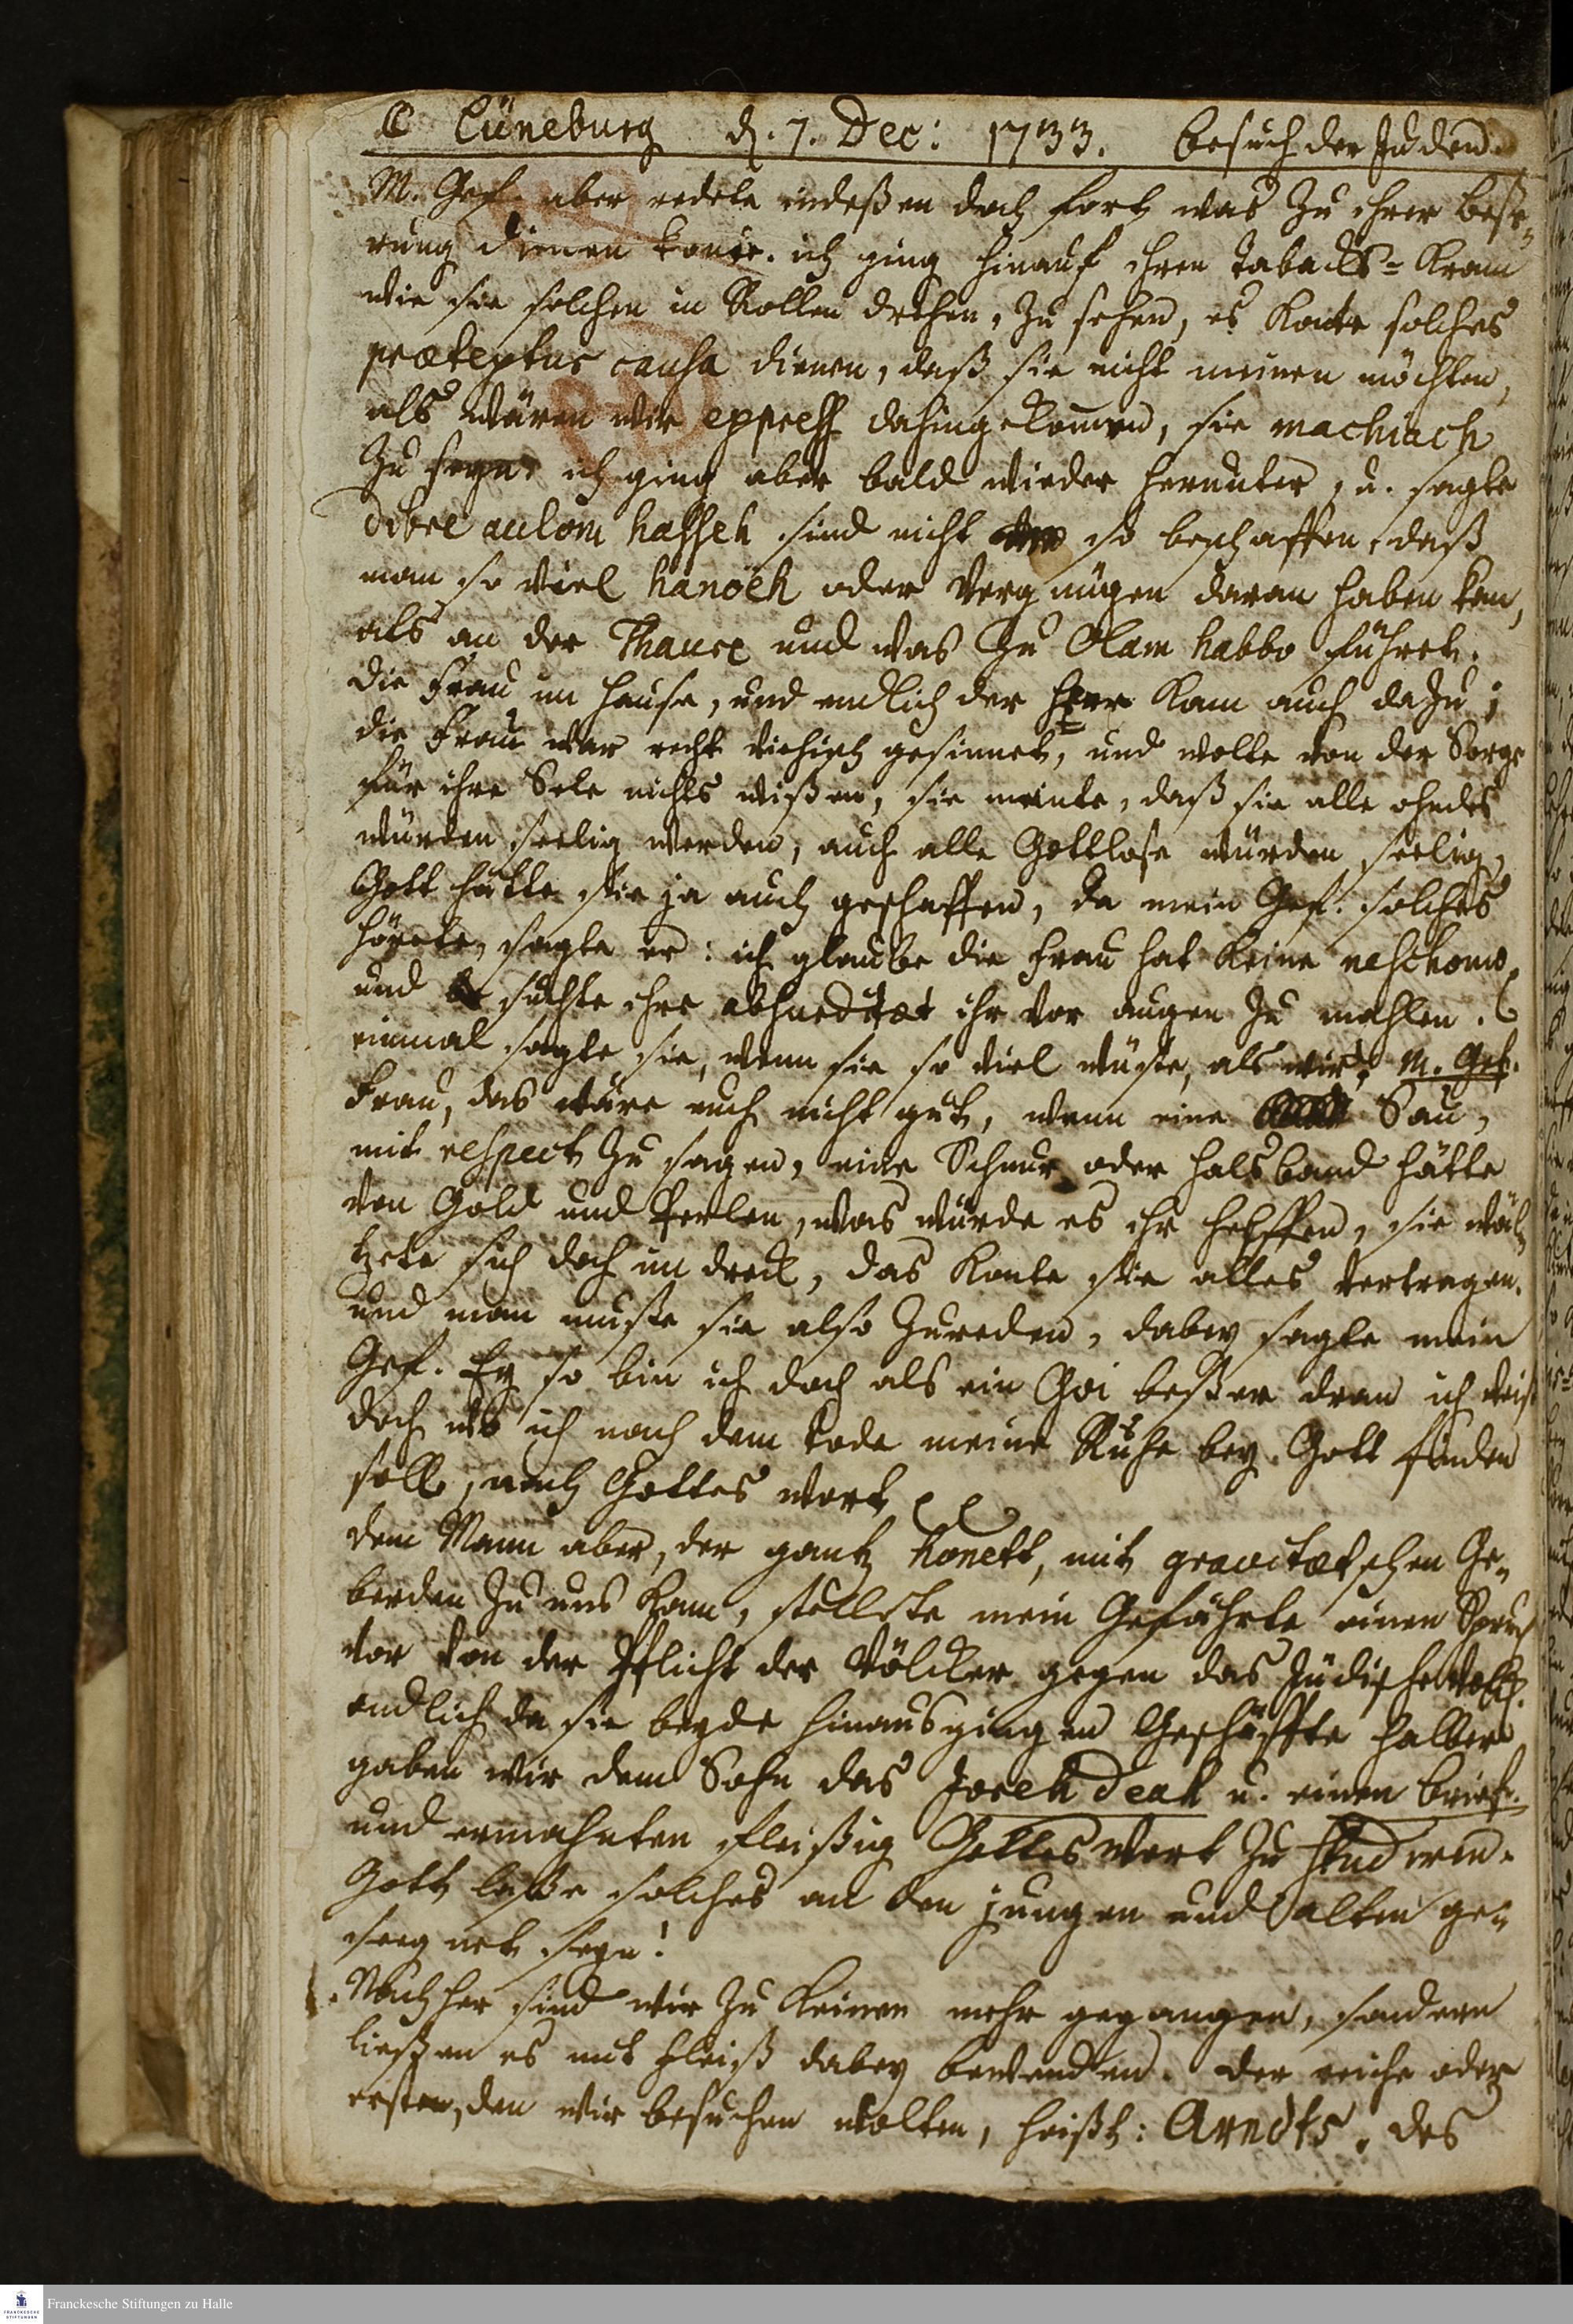 C Lüneburg d. 7. Dec: 1733. Besuch der Juden.
M. Gef. aber redete indeßen doch fort was zu ihrer Beße-
rung dienen konte. ich ging hinauf ihren Tabacks-Kram
wie sie solchen in Rollen drehen, zu sehen, es konte solches
praetextus causa dienen, daß sie nicht meinen möchten,
als wären wir express dahingekommen, sie machiach
zu seyn. ich ging aber bald wieder herunter, u. sagte
dibre aulom hasseh sind nicht so beschaffen, daß
man so viel hanoeh oder Vergnügen daran haben kan,
als an der Thaure und was zu Olam habbo führet.
die Frau im Hause, und endlich der Herr kam auch dazu;
die Frau war recht viehisch gesinnet, und wolte von der Sorge
für ihre Sele nichts wißen, sie meinte, daß sie alle ohndes
würden seelig werden, auch alle Gottlose würden seelig,
Gott hätte sie ja auch geschaffen, da mein Gef. solches
hörete, sagte er: ich glaube die Frau hat keine neschomo,
und suchte ihre absurditaet ihr vor augen zu mahlen.
einmal sagte sie, wenn sie so viel wüste, als wir, M. Gef.
Frau, das wäre auch nicht gut, wenn eine Sau,
mit respect zu sagen, eine Schnur oder Halsband hätte
von Gold und Perlen, was würde es ihr helffen, sie wäl-
tzete sich doch im dreck, das konte sie alles vertragen.
und man muste sie also zureden, dabey sagte mein
Gef. Ey so bin ich doch als ein Goi beßer dran ich weiß
doch wo ich nach dem tode meine Ruhe bey Gott finden
soll, nach Gottes wort
dem Mann aber, der gantz honett, mit gravitaetschen Ge-
berden zu uns kam, stellete mein Gefährte einen Spruch
vor von der Pflicht der Völcker gegen das Jüdische Volck.
endlich da sie beyde hinausgingen Geschäffte halber
gaben wir dem Sohn das Joreh deah u. einen brief.
und ermahnten fleißig Gottes Wort zu studiren.
Gott laße solches an den jungen und alten ge-
seegnet seyn!
Nachher sind wir zu keinen mehr gegangen, sondern
ließen es mit Fleiß dabey bewenden. der reiche oder
erste, den wir besuchen wolten, heißt: Arndts. des
Franckesche Stiftungen zu Halle